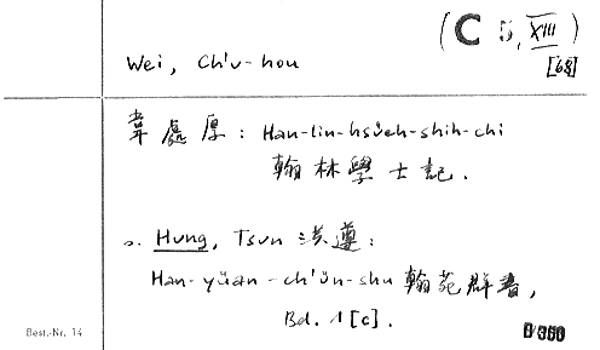 (C 5, XIII)
[68]
Wei, Ch'u-hou
韋處厚: Han-lin-hsüeh-shih-chi
翰林學士記.
s. Hung, Tsun 洪遵:
Han-yüan-ch'ün-shu 翰苑群書,
Bd. 1 [c].
Best.-Nr. 14
B/360